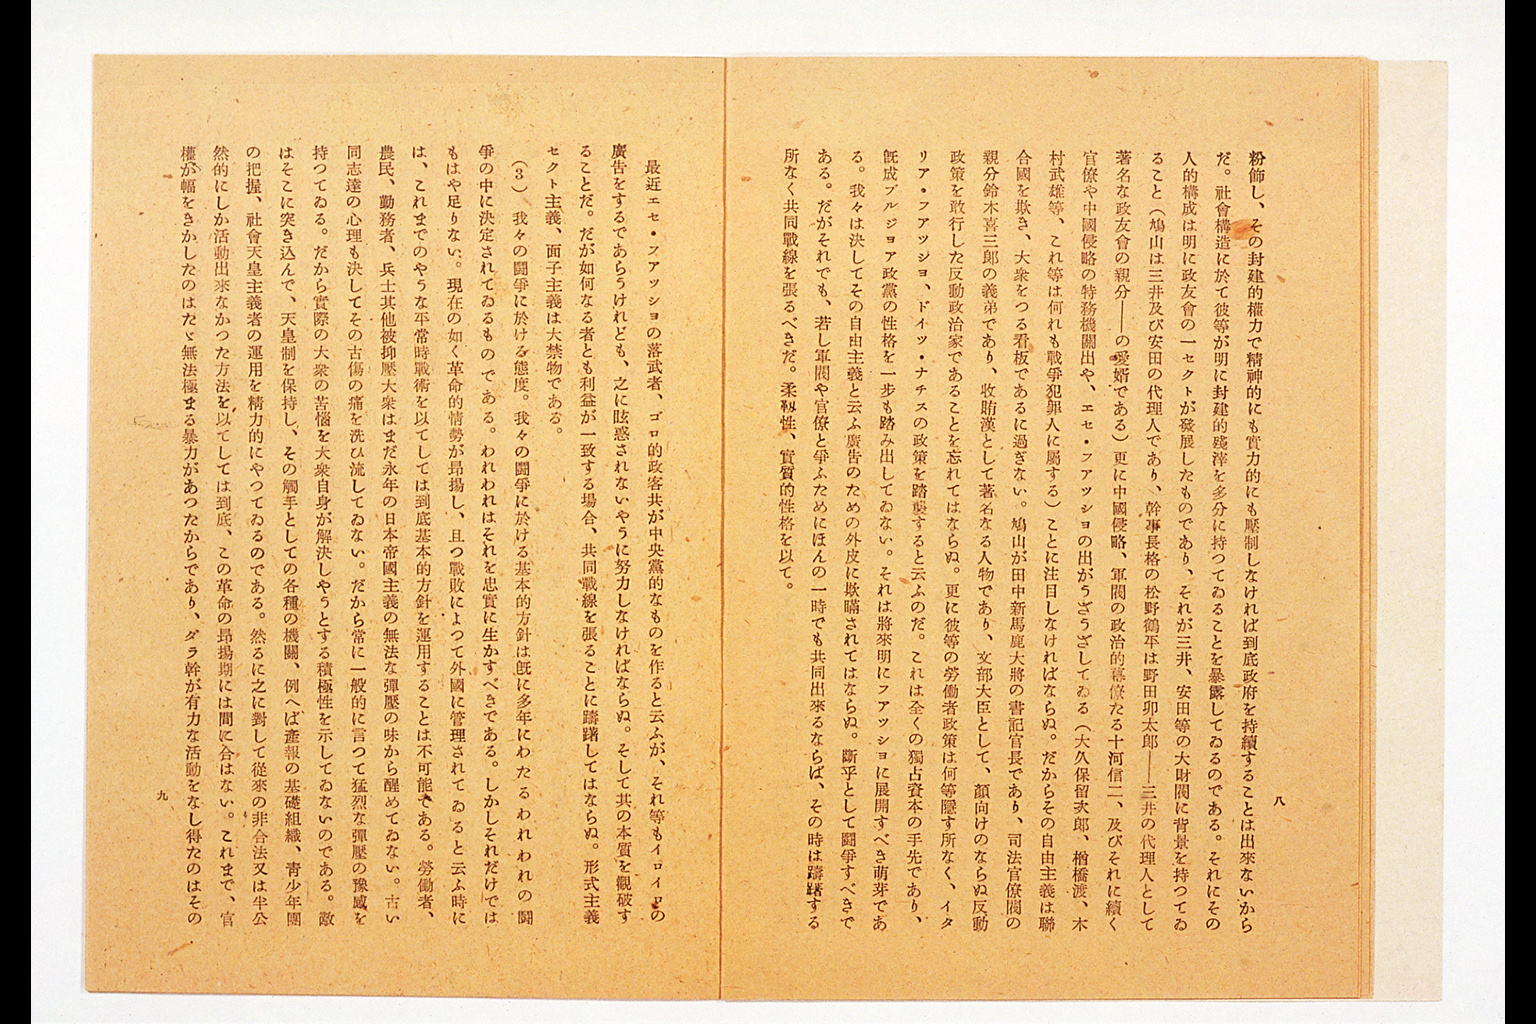 粉飾し、その封建的權力で精神的にも實力的にも壓制しなければ到底政府を持續することは出來ないから
だ。社會構造に於て彼等が明に封建的殘滓を多分に持つてゐることを暴露してゐるのである。それにその
人的構成は明に政友會の一セクトが發展したものであり、それが三井、安田等の大財閥に背景を持つてゐ
ること（鳩山は三井及び安田の代理人であり、幹事長格の松野鶴平は野田卯太郎――三井の代理人として
著名な政友會の親分――の愛婿である）更に中國侵略、軍閥の政治的幕僚たる十河信二、及びそれに續く
官僚や中國侵略の特務機關出や、エセ・フアツシヨの出がうざうざしてゐる（大久保留次郎、楢橋渡、木
村武雄等、これ等は何れも戰爭犯罪人に屬する）ことに注目しなければならぬ。だからその自由主義は聯
合國を欺き、大衆をつる看板であるに過ぎない。鳩山が田中新馬鹿大將の書記官長であり、司法官僚閥の
親分鈴木喜三郎の義弟であり、收賄漢として著名なる人物であり、文部大臣として、顏向けのならぬ反動
政策を敢行した反動政治家であることを忘れてはならぬ。更に彼等の勞働者政策は何等隱す所なく、イタ
リア・フアツシヨ、ドイツ・ナチスの政策を踏襲すると云ふのだ。これは全くの獨占資本の手先であり、
既成ブルジヨア政黨の性格を一歩も踏み出してゐない。それは將來明にフアツシヨに展開すべき萌芽であ
る。我々は決してその自由主義と云ふ廣告のための外皮に欺瞞されてはならぬ。斷乎として鬪爭すべきで
ある。だがそれでも、若し軍閥や官僚と爭ふためにほんの一時でも共同出來るならば、その時は躊躇する
所なく共同戰線を張るべきだ。柔靱性、實質的性格を以て。
八
最近エセ・フアツシヨの落武者、ゴロ的政客共が中央黨的なものを作ると云ふが、それ等もイロイロの
廣告をするであらうけれども、之に眩惑されないやうに努力しなければならぬ。そして其の本質を觀破す
ることだ。だが如何なる者とも利益が一致する場合、共同戰線を張ることに躊躇してはならぬ。形式主義
セクト主義、面子主義は大禁物である。
（３）　我々の鬪爭に於ける態度。我々の鬪爭に於ける基本的方針は既に多年にわたるわれわれの鬪
爭の中に決定されてゐるものである。われわれはそれを忠實に生かすべきである。しかしそれだけでは
もはや足りない。現在の如く革命的情勢が昂揚し、且つ戰敗によつて外國に管理されてゐると云ふ時に
は、これまでのやうな平常時戰術を以てしては到底基本的方針を運用することは不可能である。勞働者、
農民、勤務者、兵士其他被抑壓大衆はまだ永年の日本帝國主義の無法な彈壓の味から醒めてゐない。古い
同志達の心理も決してその古傷の痛を洗ひ流してゐない。だから常に一般的に言つて猛烈な彈壓の豫感を
持つてゐる。だから實際の大衆の苦惱を大衆自身が解決しやうとする積極性を示してゐないのである。敵
はそこに突き込んで、天皇制を保持し、その觸手としての各種の機關、例へば產報の基礎組織、靑少年團
の把握、社會天皇主義者の運用を精力的にやつてゐるのである。然るに之に對して從來の非合法又は半公
然的にしか活動出來なかつた方法を以てしては到底、この革命の昂揚期には間に合はない。これまで、官
權が幅をきかしたのはたゞ無法極まる暴力があつたからであり、ダラ幹が有力な活動をなし得たのはその
九